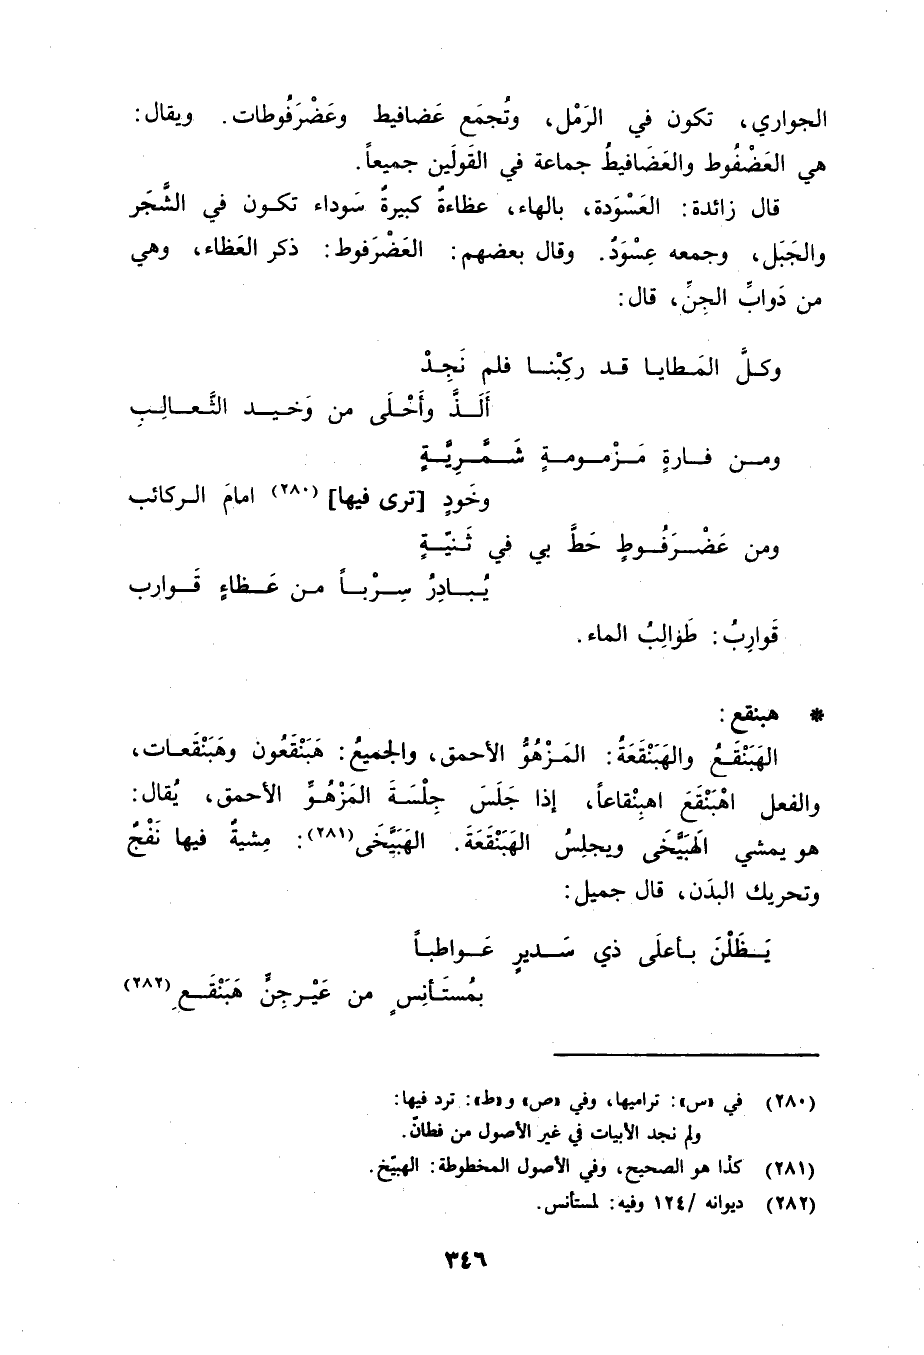 الجواري، تكون في الرَمْل، وتُجمَع عَضافيط وعَضْرَفُوطات. ويقال:
هي العَضْفُوط والعَضَافيطُ جماعة في القَولَين جميعاً.
قال زائدة: العَسْوَدة، بالهاء، عظاءةٌ كبيرةٌ سَوداء تكون في الشَّجَر
والجَبَل، وجمعه عِسْوَدٌ. وقال بعضهم: العَضْرَفوط: ذكر العَظاء، وهي
من دَوابِّ الجِنِّ، قال:
وكلَّ المَطايا قد ركِبْنا فلم نَجِدْ
أَلَذَّ وأَحْلَى من وَخيد الثَّعالِبِ
ومن فارةٍ مَزْمومةٍ شَمَّرِيَّةٍ
وخَودٍ [ترى فيها] (٢٨٠) امامَ الركائب
ومن عَضْرَفُوطٍ حَطَّ بي في ثَنيّةٍ
يُبادِرُ سِرْباً من عَظاءٍ قَوارب
قَوارِبُ: طَوالِبُ الماء.
* هبنقع:
الهَبَنْقَعُ والهَبَنْقَعَةُ: المَزْهُوُّ الأحمق، والجميعُ: هَبَنْقَعُون وهَبَنْقَعات،
والفعل اهْبَنْقَعَ اهبِنْقاعاً، إذا جَلَسَ جِلْسَةَ المَزْهُوِّ الأحمق، يُقال:
هو يمشي الهَبَيَّخَى ويجلِسُ الهَبَنْقَعَةَ. الهَبَيَّخَى(٢٨١): مِشيةٌ فيها نَفْجٌ
وتحريك البدَن، قال جميل:
يَظَلْنَ بأعلَى ذي سَديرٍ عَواطباً
بمُستَأنِسٍ من عَيْرجِنَّ هَبَنْقَعِ(٢٨٢)
(٢٨٠) في «س»: تراميها، وفي «ص» و«ط»: ترد فيها:
ولم نجد الأبيات في غير الأصول من فطانّ.
(٢٨١) كذا هو الصحيح، وفي الأصول المخطوطة: الهبيّخ.
(٢٨٢) ديوانه /١٢٤ وفيه: لمستأنس.
٣٤٦